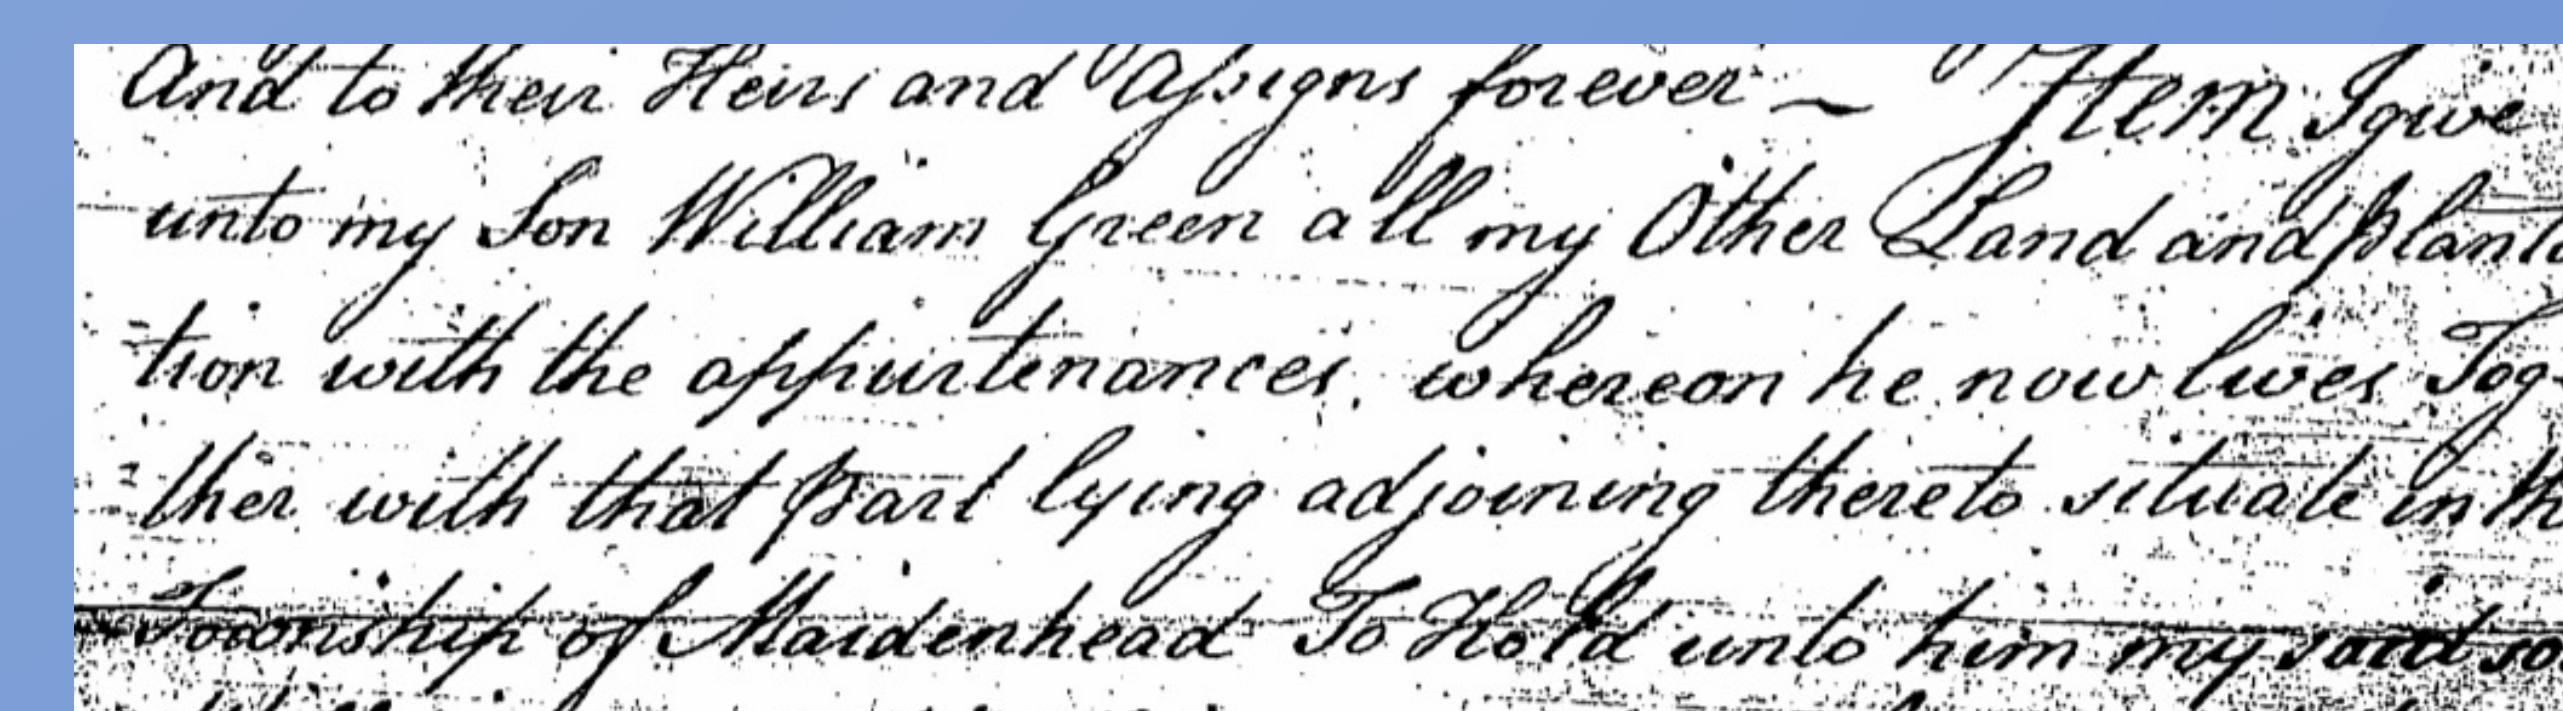 And to their Heirs and Assigns forever ~ Item I give
unto my Son William Green all my Other Land and Planta
tion with the appurtenances, whereon he now lives Tog-
ther with that part lying adjoining thereto situate in th
Township of Maidenhead To Hold unto him my said so